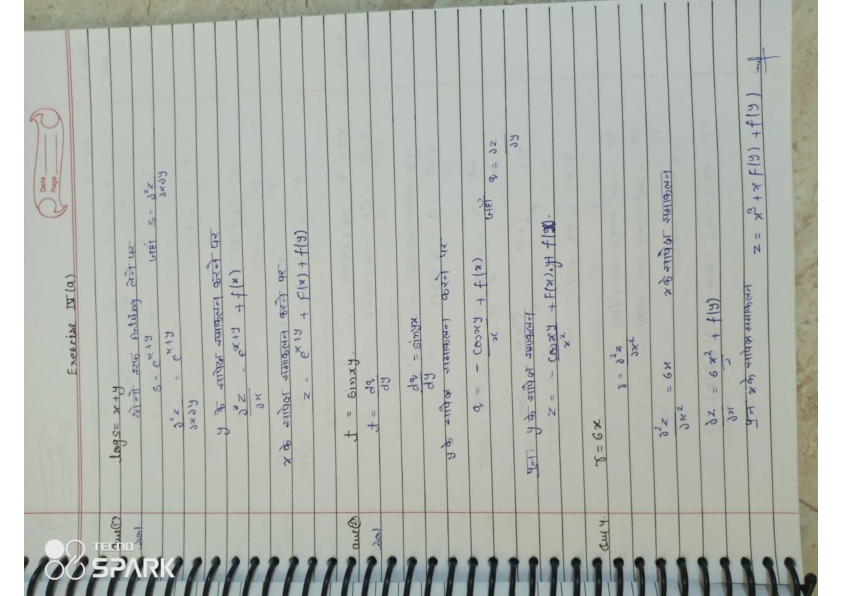 Date
Page
Exercise IV(a)
ans(1) log s = x+y
हल दोनों तरफ Antilog लेने पर
s = e^{x+y} जहां s = ∂²z/∂x∂y
∂²z/∂x∂y = e^{x+y}
y के सापेक्ष समाकलन करने पर
∂²z/∂x = e^{x+y} + f(x)
x के सापेक्ष समाकलन करने पर
z = e^{x+y} + F(x) + f(y)
ans(2) t = sinxy
हल t = dq/dy
dq/dy = sinyx
y के सापेक्ष समाकलन करने पर
q = - cosxy/x + f(x) जहाँ q = ∂z/∂y
पुनः y के सापेक्ष समाकलन
z = - cosxy/x² + F(x).y+
ans 4. r = 6x
r = ∂²z/∂x²
∂²z/∂x² = 6x x के सापेक्ष समाकलन
∂z/∂x = 6x²/2 + f(y)
पुनः x के सापेक्ष समाकलन
z = x³ + x f(y) + f(y)
TECNO
SPARK